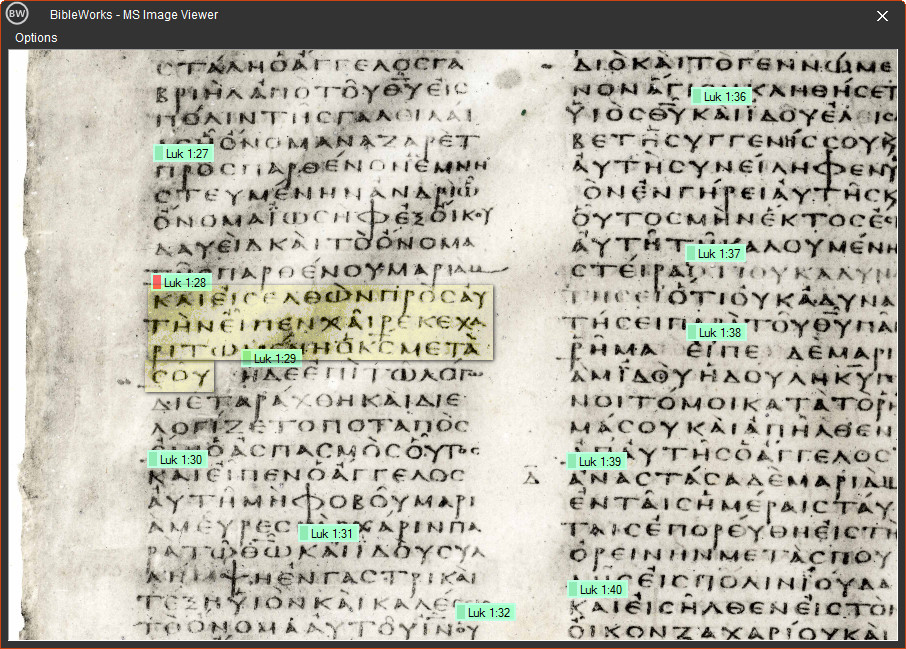 BW BibleWorks - MS Image Viewer
Options
ϹΤΑΛΗΟΑΓΓΕΛΟϹΓΑ
ΒΡΙΗΛΑΠΟΤΟΥΘΥΕΙϹ
ΠΟΛΙΝΤΗϹΓΑΛΙΛΑΙ
ΟΝΟΜΑΝΑΖΑΡΕΤ
Luk 1:27
ΠΡΟϹΠΑΡΘΕΝΟΝΕΜΝΗ
ϹΤΕΥΜΕΝΗΝΑΝΔΡΙΩ
ΟΝΟΜΑΙΩϹΗΦΕΞΟΙΚΟΥ
ΔΑΥΕΙΔΚΑΙΤΟΟΝΟΜΑ
ΤΗϹΠΑΡΘΕΝΟΥΜΑΡΙΑΜ
Luk 1:28
ΚΑΙΕΙϹΕΛΘΩΝΠΡΟϹΑΥ
ΤΗΝΕΙΠΕΝΧΑΙΡΕΚΕΧΑ
ΡΙΤΩΜΕΝΗΟΚϹΜΕΤΑ
Luk 1:29
ϹΟΥ ΗΔΕΕΠΙΤΩΛΟΓΩ
ΔΙΕΤΑΡΑΧΘΗΚΑΙΔΙΕ
ΛΟΓΙΖΕΤΟΠΟΤΑΠΟϹ
ΟΑϹΠΑϹΜΟϹΟΥΤΟϹ
Luk 1:30
ΚΑΙΕΙΠΕΝΟΑΓΓΕΛΟϹ
ΑΥΤΗΜΗΦΟΒΟΥΜΑΡΙ
ΑΜΕΥΡΕϹ ΧΑΡΙΝΠΑ
Luk 1:31
ΡΑΤΩΘΩΚΑΙΙΔΟΥϹΥΛ
ΛΗΜΨΗΕΝΓΑϹΤΡΙΚΑΙ
ΤΕΞΗΥΙΟΝΚΑΙΚΑΛΕ
Luk 1:32
ΤΟΟΝΟΜΑΑΥΤΟΥΙΝ ΟΥ
ΔΙΟΚΑΙΤΟΓΕΝΝΩΜΕ
ΝΟΝΑΓΙ ΚΛΗΘΗϹΕΤ
Luk 1:36
ΥΙΟϹΘΥΚΑΙΙΔΟΥΕΛΕΙϹ
ΒΕΤΗϹΥΓΓΕΝΗϹϹΟΥΚ
ΑΥΤΗϹΥΝΕΙΛΗΦΕΝΥ
ΟΝΕΝΓΗΡΕΙΑΥΤΗϹΚ
ΟΥΤΟϹΜΗΝΕΚΤΟϹΕϹ
ΑΥΤΗΤΗ ΑΛΟΥΜΕΝΗ
Luk 1:37
ϹΤΕΙΡΑ ΤΙΟΥΚΑΔΥΝ
ΤΗϹΕΙΠ
Luk 1:38
ΡΗΜΑ ΕΙΠΕ ΔΕΜΑΡΙ
ΑΜΙΔΟΥΗΔΟΥΛΗΚΥ
ΝΟΙΤΟΜΟΙΚΑΤΑΤΟΡΗ
ΜΑϹΟΥΚΑΙΑΠΗΛΘΕΝ
ΑΥΤΗϹΟΑΓΓΕΛΟϹ
Luk 1:39
Δ ΑΝΑϹΤΑϹΑΔΕΜΑΡΙΑΜ
ΕΝΤΑΙϹΗΜΕΡΑΙϹΤΑΥ
ΤΑΙϹΕΠΟΡΕΥΘΗΕΙϹΤ
ΟΡΕΙΝΗΝΜΕΤΑϹΠΟΥ
ΕΙϹΠΟΛΙΝΙΟΥΔΑ
Luk 1:40
ΚΑΙΕΙϹΗΛΘΕΝΕΙϹΤΟΝ
ΟΙΚΟΝΖΑΧΑΡΙΟΥΚΑΙ